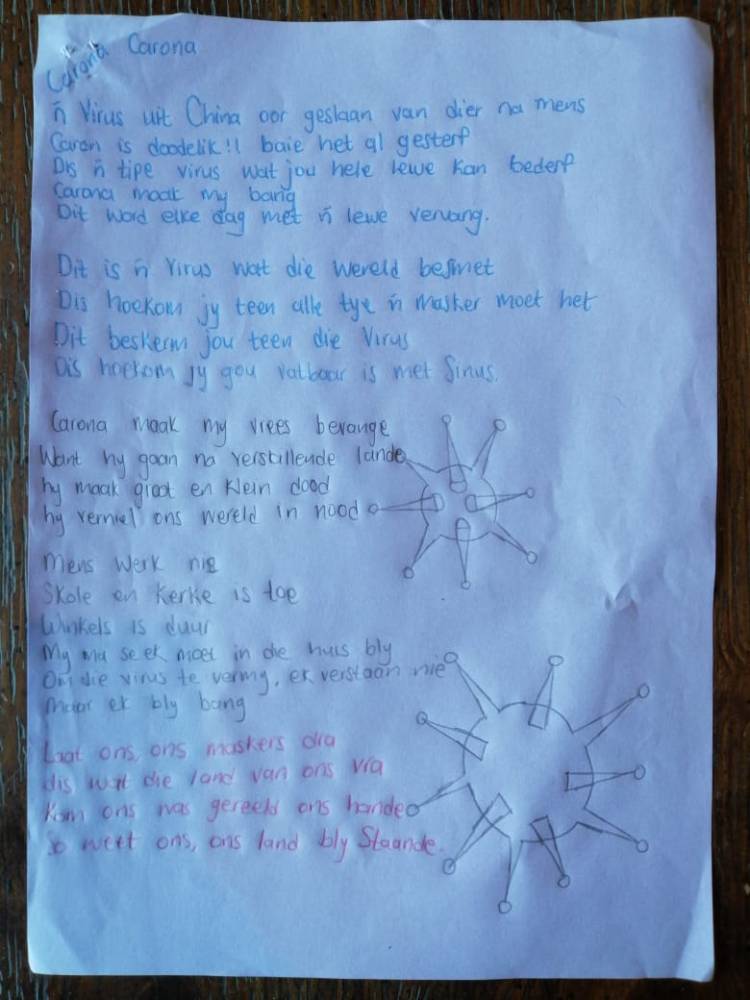 Carona Carona
ñ Virus uit China oor geslaan van dier na mens
Caron is doodelik!! baie het al gesterf
Dis ñ tipe virus wat jou hele lewe kan bederf
Carona maak my bang
Dit word elke dag met ñ lewe vervang.
Dit is ñ Virus wat die wereld besmet
Dis hoekom jy teen alle tye ñ masker moet het
Dit beskerm jou teen die Virus
Dis hoekom jy gou vatbaar is met Sinus.
Carona maak my vrees bevange
Want hy gaan na verskillende lande
hy maak groot en klein dood
hy verniel ons wereld in nood
Mens werk nie
Skole en kerke is toe
Winkels is duur
My ma se ek moet in die huis bly
Om die virus te vermy, ek verstaan nie
Maar ek bly bang
Laat ons, ons maskers dra
dis wat die land van ons vra
Kom ons was gereeld ons hande
So weet ons, ons land bly Staande.